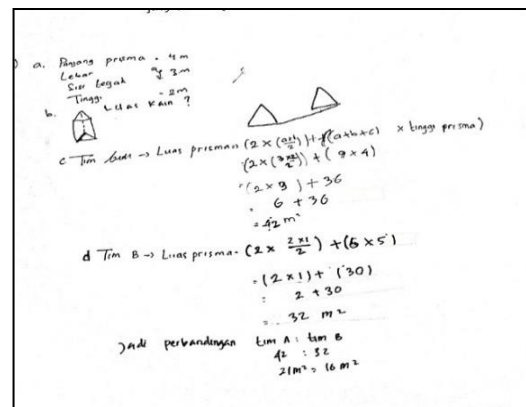 a. Panjang prisma = 4 m
Lebar 3m
Sisi tegak
Tinggi = 2m
b. Luas kain ?
c Tim → Luas prisma = (2 × ( )) + (a+b+c) × tinggi prisma)
(2 × ( )) + (9 × 4)
(2 × 3) + 36
= 6 + 36
= 42 m²
d Tim B → Luas prisma = (2 × 2×1/2) + (6 × 5)
= (2 × 1) + (30)
= 2 + 30
= 32 m²
Jadi perbandingan tim A : tim B
42 : 32
21 m² = 16 m²